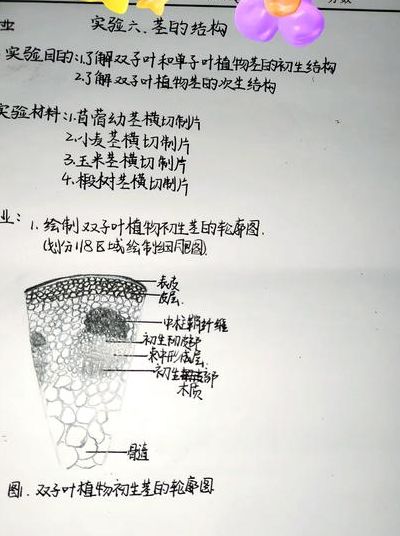 业
实验六、茎的结构
实验目的:1.了解双子叶和单子叶植物茎的初生结构
2.了解双子叶植物茎的次生结构
实验材料:1.苜蓿幼茎横切制片
2.小麦茎横切制片
3.玉米茎横切制片
4.椴树茎横切制片
业:1.绘制双子叶植物初生茎的轮廓图.
(划分1/8区域绘制细胞图)
表皮
皮层.
中柱鞘纤维
初生韧皮部
束中形成层.
初生部
木质
髓
图1.双子叶植物初生茎的轮廓图